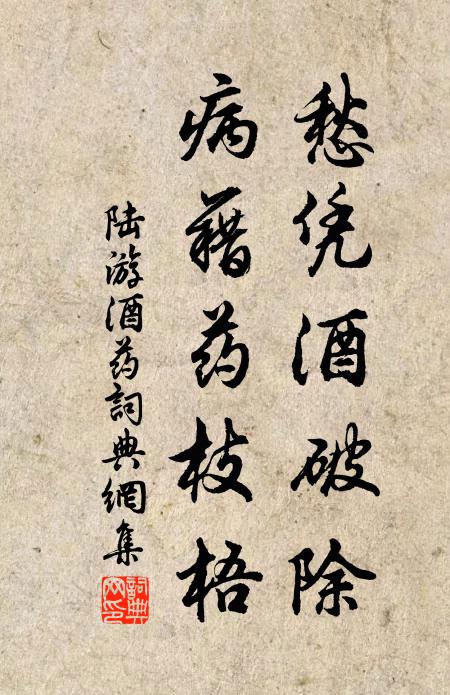 愁凭酒破除
病藉药枝梧
陆游酒药詞典網集
詞典网印